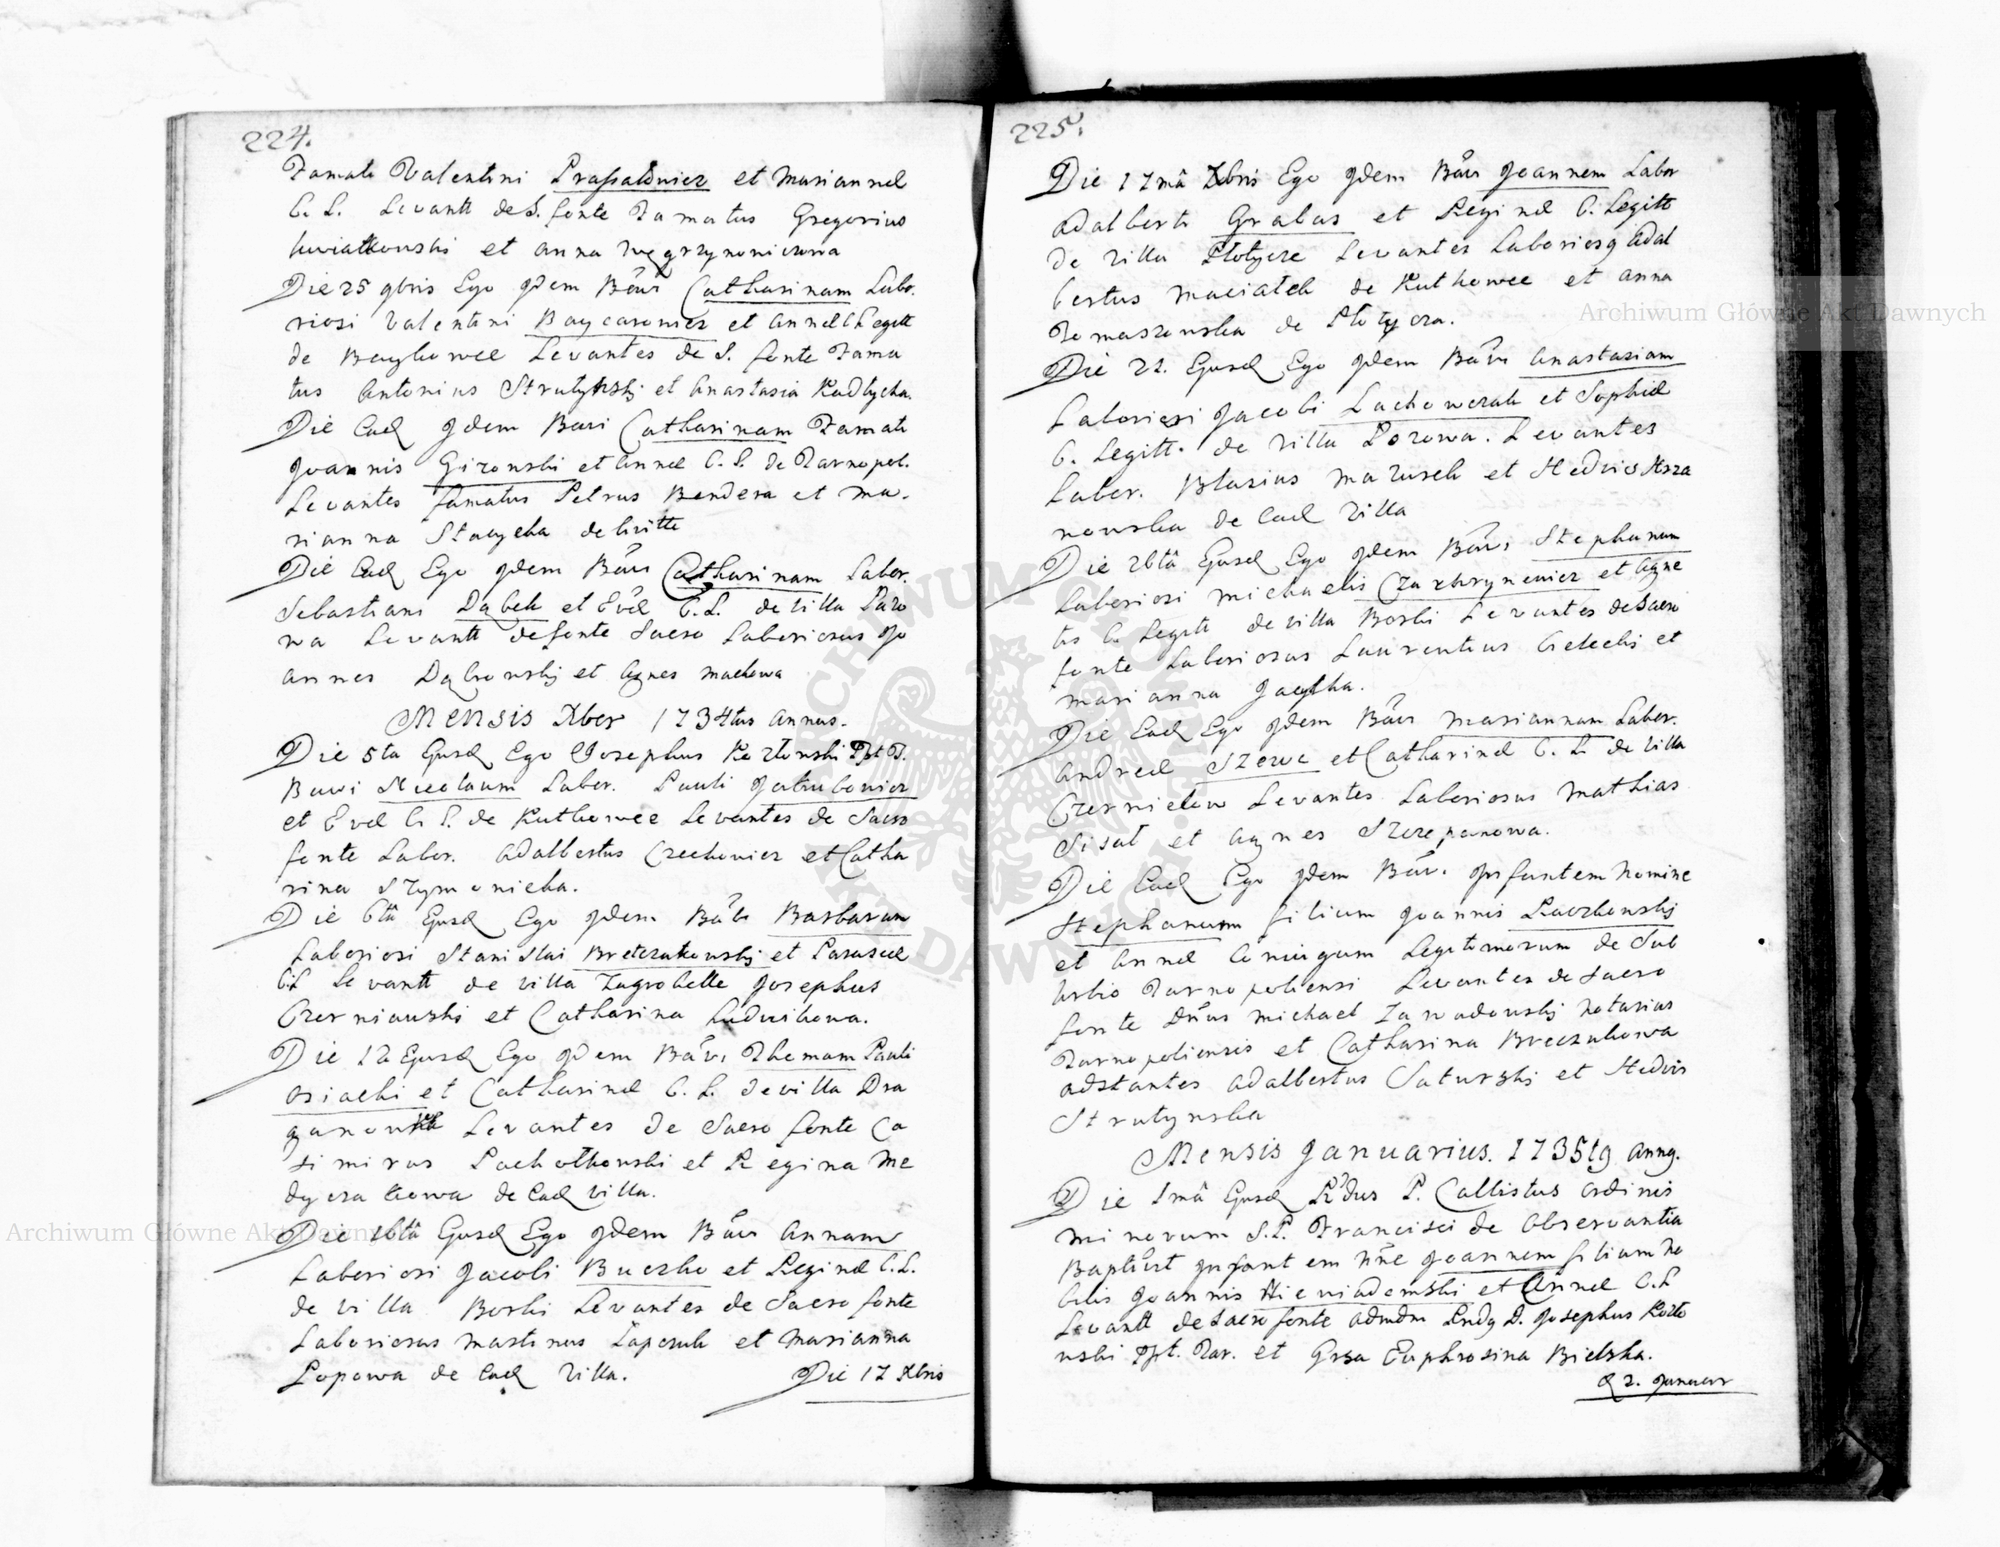 224.
Famati Valentini Prassałowicz et Mariannæ
C. L. Levantt de S. fonte Famatus Gregorius
kwiatkowski et Anna Węgrzynowiczowa
Die 25 9bris Ego qdem Bãvi Catharinam Labo.
riosi Valentini Baycarowicz et Annæ C Legitt
de Baykowce Levantes de S. fonte Fama
tus Antonius Strutyński et Anastasia Kadłycka.
Die Ead qdem Bavi Catharinam Famati
Joannis Gizowski et Annæ C. L. de Tarnopol.
Levantes famatus Petrus Bendera et Ma.
rianna de
Die Ead Ego qdem Bãvi Catharinam Labor.
Sebastiani Dąbek et Evæ C. L. de villa
Levantt de fonte Sacro Laboriosus Jo
annes Dąbrowski et Agnes Machowa
Mensis Xber 1734tus Annus.
Die 5ta Ejusd Ego Josephus Kozłowski Ppt T.
Bawi Nicolaum Labor. Pauli Jakubowicz
et Evæ C. L. de Kutkowce Levantes de Sacro
fonte Labor. Adalbertus Czechowicz et Catha
rina Szymonicha.
Die 6tâ Ejusd Ego qdem Bãvi Barbaram
Laboriosi Stanislai et Parascæ
C L Levantt de villa Zagrobelle Josephus
Czerniawski et Catharina Ludwikowa.
Die 12 Ejusd Ego qdem Bãvi Thomam Pauli
Osiacki et Catharinæ C. L. de villa Dra
ganowka Levantes de Sacro fonte Ca
simirus Pachołkowski et Regina Me
de Ead villa.
Die 16tâ Ejusd Ego qdem Bãvi Annam
Laboriosi Jacobi Buczko et Reginæ C. L.
de villa Borki Levantes de Sacro fonte
Laboriosus Martinus Łapczuk et Marianna
Popowa de Ead villa.
Die 17 Xbris
225.
Die 17mâ Xbris Ego qdem Bãvi Joannem Labor
Adalberti Grabas et Reginæ C. Legitt
de villa Płotycze Levantes Laboriosq Adal
bertus Maciatek de Kutkowce et Anna
Tomaszewska de Płotycza.
Die 21. Ejusd Ego qdem Bãvi Anastasiam
Laboriosi Jacobi Lachowczak et Sophiæ
C. Legitt. de villa Poczowa. Levantes
Labor. Blasius Mazurek et Hedvis
nowska de Ead villa
Die 26tâ Ejusd Ego qdem Bãvi Stephanum
Laboriosi Michaelis et Agne
tis C. Legitt de villa Borki Levantes de Sacro
fonte Laboriosus Laurentius et
Marianna
Die Ead Ego qdem Bãvi Mariannam Labor.
Andreæ Szewc et Catharinæ C. L. de villa
Czernielow Levantes Laboriosus Mathias
Sisat et Agnes Szczepanowa.
Die Ead Ego qdem Bãv. Infantem Nomine
Stephanum filium Joannis Raczkowski
et Annæ Coniugum Legitimorum de Sub
urbio Tarnopoliensi Levantes de Sacro
fonte Dñus Michael Zawadowski Notarius
Tarnopoliensis et Catharina Breczukowa
adstantes Adalbertus Saturski et Hedvis
Strutynska
Mensis Januarius. 1735tq Annq.
Die 1mâ Ejusd R̃dus P. Callistus Ordinis
Minorum S. P. Francisci de Observantia
Baptiũt Infantem Nñe Joannem filium No
bilis Joannis Niewiadomski et Annæ C. L
Levantt de Sacro fonte Admdm Rndq D. Josephus Kozło
wski Ppt. Tar. et Grsa Euphrosina Bielska.
d 2. Januar
Archiwum Główne Akt Dawnych
Archiwum Główne Akt Dawnych